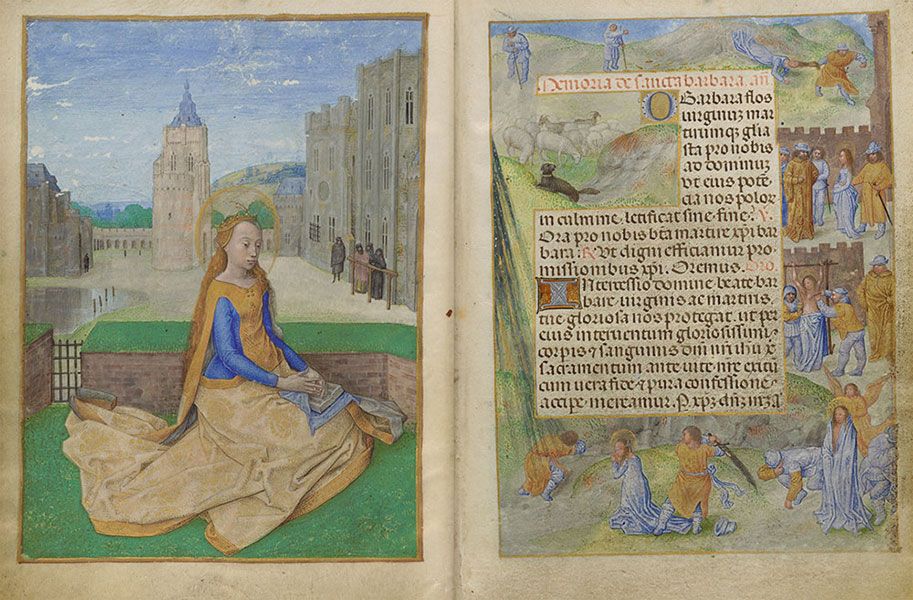 Memoria de sancta barbara. an̄
O Barbara flos
uirginuz mar
tirumqz glia
ista pro nobis
ad dominuz
ut eius potē
cia nos polor
in culmine, letificat sine fine. V.
Ora pro nobis bta martir xpi bar
bara. R Ut digni efficiamur pro
missionibus xpi. Oremus. Oro.
Intercessio domine beate bar
bare uirginis ac martiris,
tue gloriosa nos protegat, ut per
eius interuentum gloriosissimi
corpis & sanguinis dm̄ nr̄i ihu x
sacramentum ante uite nr̄e exitū
cum uera fide & pura confessione
accipe mereamur. P xp̄z dn̄z